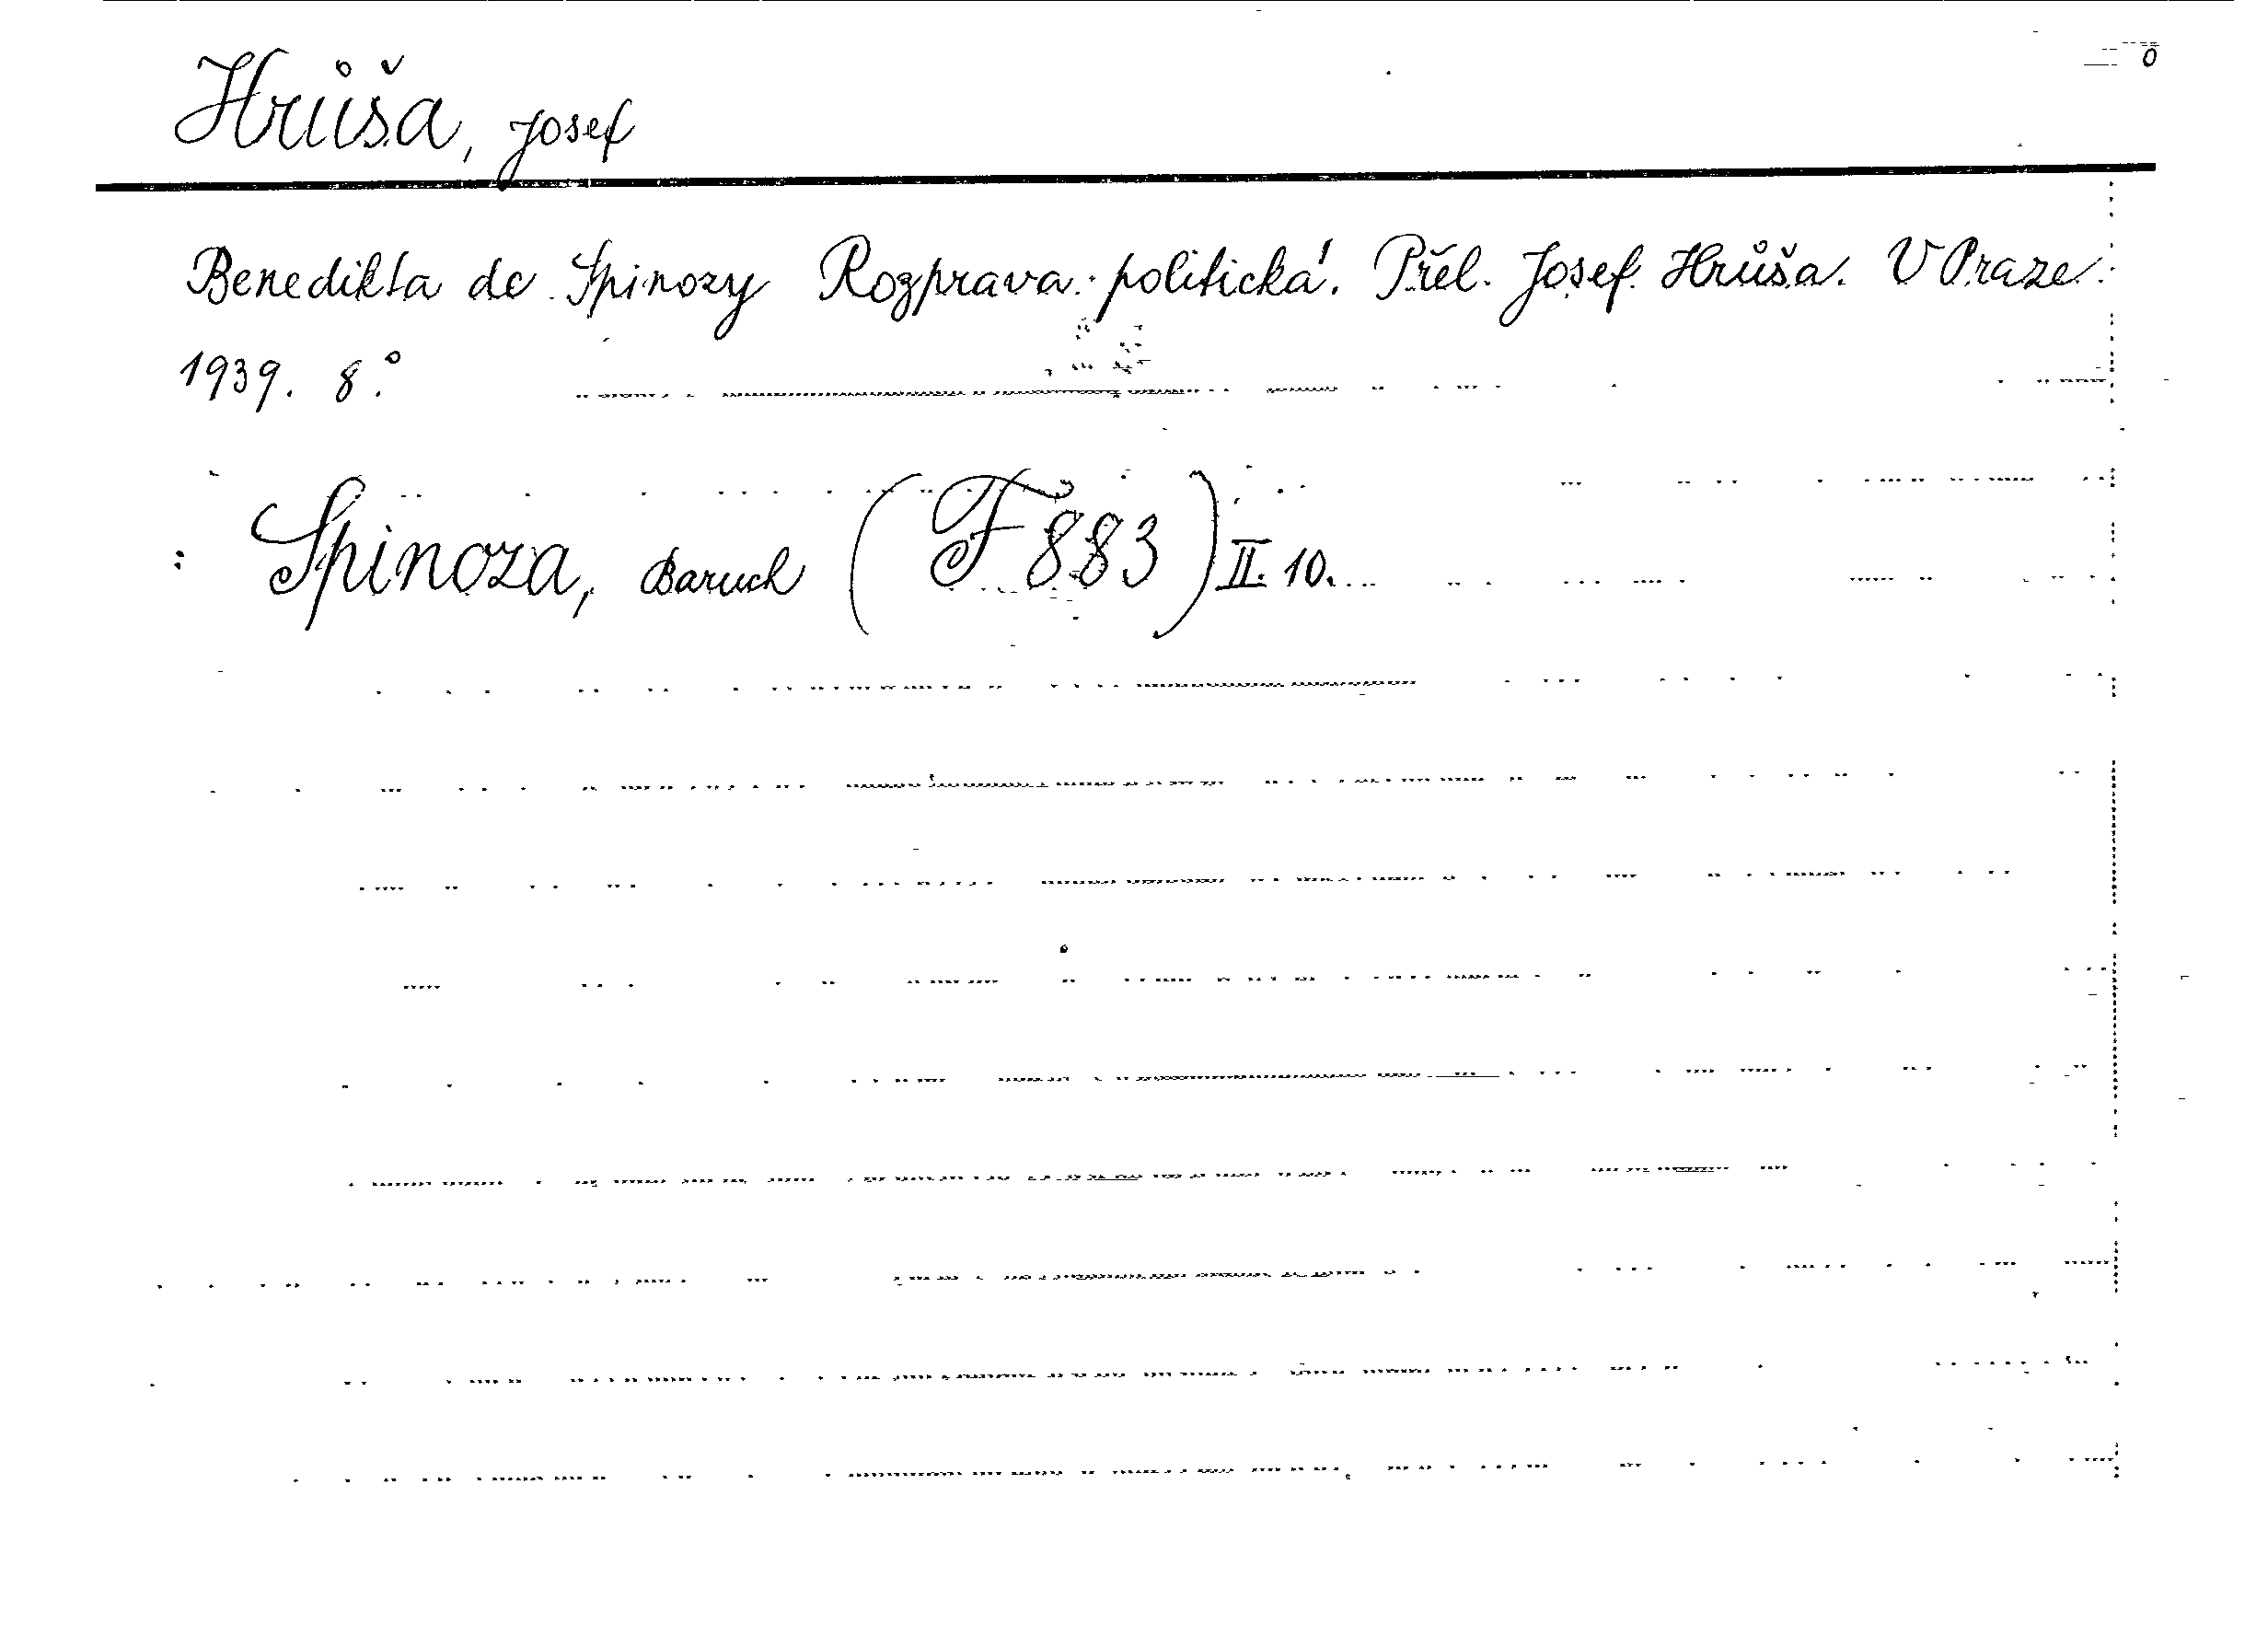 Hrůša, Josef
Benedikta de Spinozy Rozprava politická. Přel. Josef Hrůša. V Praze
1939. 8.°
: Spinoza, Baruch (F 883) II. 10.